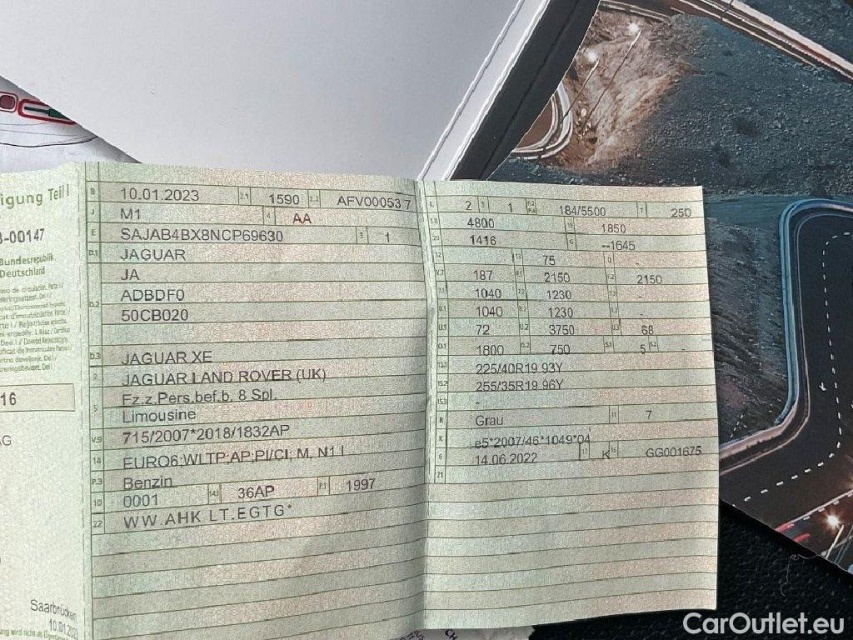 igung Teil I
-00147
Bundesrepublik
Deutschland
16
AG
Saarbrücken
10.01.20
B 10.01.2023 2.1 1590 2.2 AFV000537
J M1 4 AA
E SAJAB4BX8NCP69630 3 1
D.1 JAGUAR
JA
D.2 ADBDF0
50CB020
D.3 JAGUAR XE
2 JAGUAR LAND ROVER (UK)
5 Fz.z.Pers.bef.b. 8 Spl.
Limousine
V.9 715/2007*2018/1832AP
14 EURO6;WLTP;AP;PI/CI; M, N1 I
P.3 Benzin
10 0001 14.1 36AP P.1 1997
22 WW.AHK LT.EGTG*
L 2 1 P.2 P.4 184/5500 T 250
4800 18 1850
1416 G --1645
75
187 2150 2150
1040 1230 -
1040 1230 -
72 3750 68
1800 750 5
225/40R19 93Y
255/35R19 96Y
-
R Grau 11 7
K e5*2007/46*1049*04
6 14.06.2022 17 K 16 GG001675
21
CarOutlet.eu